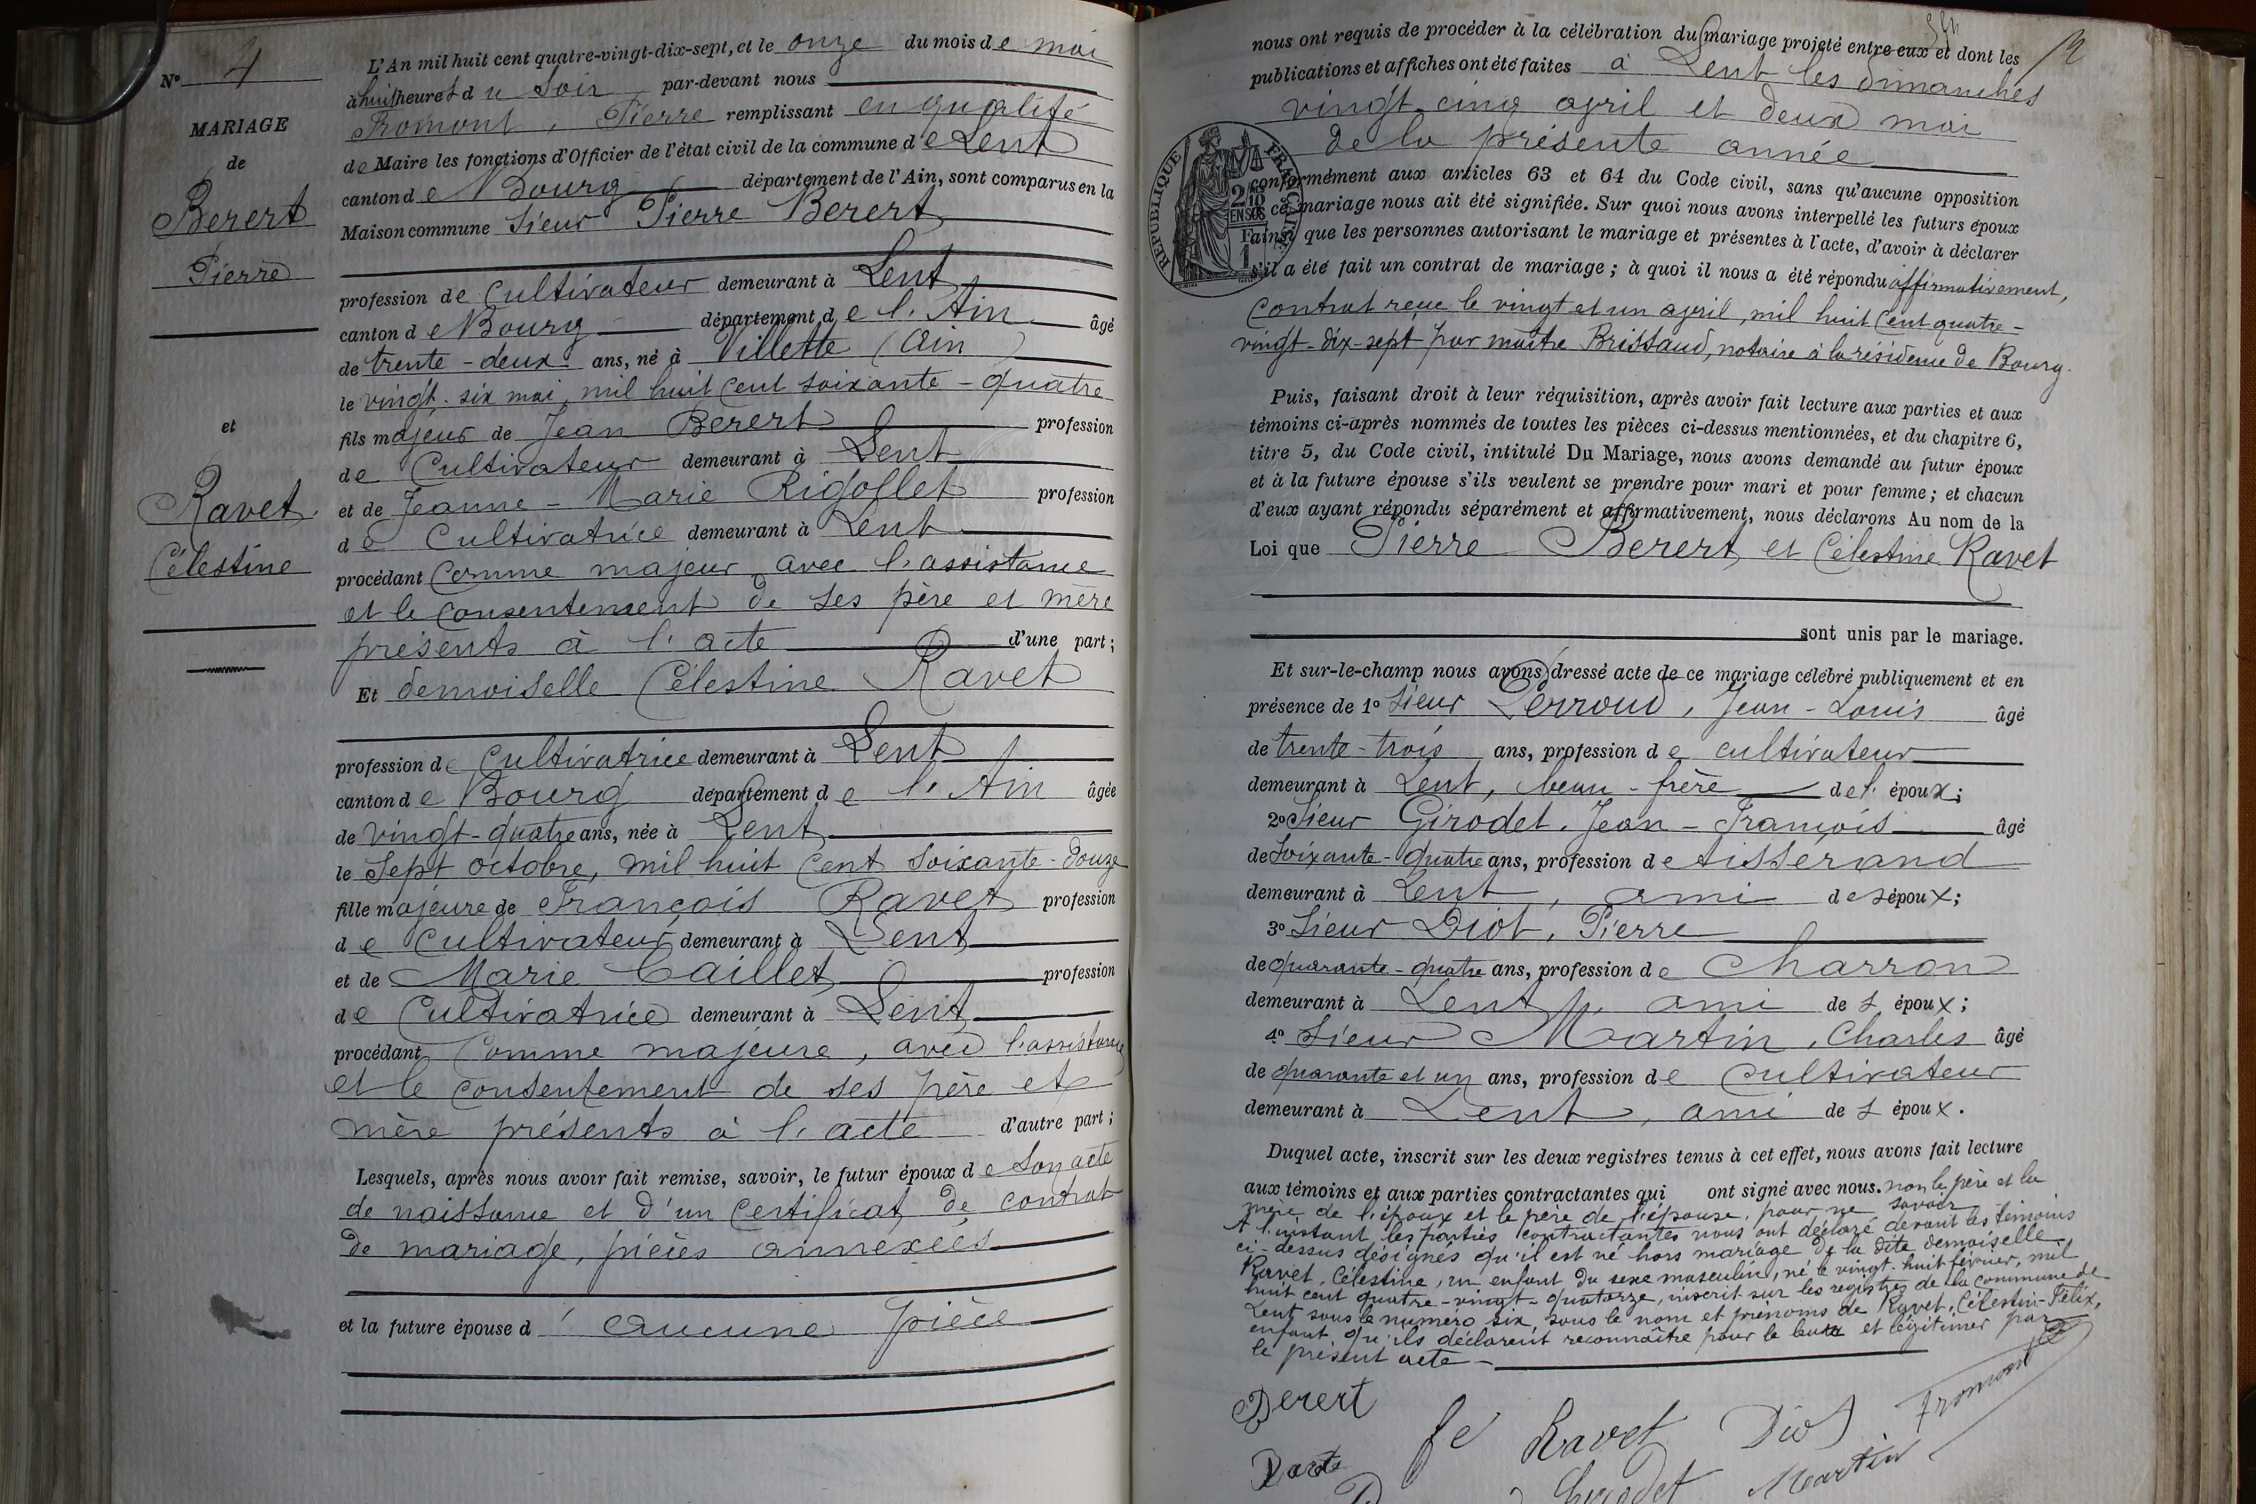 N° 4
MARIAGE
de
Berert
Pierre
et
Ravet
Célestine
L'An mil huit cent quatre-vingt-dix-sept, et le onze du mois de mai
à huit heures du Soir par-devant nous
Fromont, Pierre remplissant en qualité
de Maire les fonctions d'Officier de l'état civil de la commune de Lent
canton de Bourg département de l'Ain, sont comparus en la
Maison commune Sieur Pierre Berert
profession de Cultivateur demeurant à Lent
canton de Bourg département de l'Ain âgé
de trente-deux ans, né à Villette (Ain)
le vingt-six mai, mil huit cent soixante-quatre
fils majeur de Jean Berert profession
de Cultivateur demeurant à Lent
et de Jeanne-Marie Rigollet profession
de Cultivatrice demeurant à Lent
procédant comme majeur avec l'assistance
et le consentement de ses père et mère
présents à l'acte d'une part;
Et demoiselle Célestine Ravet
profession de Cultivatrice demeurant à Lent
canton de Bourg département de l'Ain âgée
de vingt-quatre ans, née à Lent
le sept octobre, mil huit cent soixante-douze
fille majeure de François Ravet profession
de cultivateur demeurant à Lent
et de Marie Caillet profession
de Cultivatrice demeurant à Lent
procédant comme majeure, avec l'assistance
et le consentement de ses père et
mère présents à l'acte d'autre part;
Lesquels, après nous avoir fait remise, savoir, le futur époux de Son acte
de naissance et d'un certificat de contrat
de mariage, pièces annexées
et la future épouse d' aucune pièce
nous ont requis de procéder à la célébration du mariage projeté entre eux et dont les
publications et affiches ont été faites à Lent les dimanches
vingt-cinq avril et deux mai
de la présente année
conformément aux articles 63 et 64 du Code civil, sans qu'aucune opposition
à ce mariage nous ait été signifiée. Sur quoi nous avons interpellé les futurs époux
ainsi que les personnes autorisant le mariage et présentes à l'acte, d'avoir à déclarer
s'il a été fait un contrat de mariage; à quoi il nous a été répondu affirmativement,
Contrat reçu le vingt et un avril, mil huit cent quatre-
vingt-dix-sept par maître Brissaud, notaire à la résidence de Bourg.
Puis, faisant droit à leur réquisition, après avoir fait lecture aux parties et aux
témoins ci-après nommés de toutes les pièces ci-dessus mentionnées, et du chapitre 6,
titre 5, du Code civil, intitulé Du Mariage, nous avons demandé au futur époux
et à la future épouse s'ils veulent se prendre pour mari et pour femme; et chacun
d'eux ayant répondu séparément et affirmativement, nous déclarons Au nom de la
Loi que Pierre Berert et Célestine Ravet
sont unis par le mariage.
Et sur-le-champ nous avons dressé acte de ce mariage célébré publiquement et en
présence de 1° Sieur Perroud, Jean-Louis âgé
de trente-trois ans, profession de cultivateur
demeurant à Lent, beau-frère de l'époux;
2° Sieur Girodet, Jean-François âgé
de soixante-quatre ans, profession de tisserand
demeurant à Lent, ami des époux;
3° Sieur Diot, Pierre
de quarante-quatre ans, profession de charron
demeurant à Lent, ami des époux;
4° Sieur Martin, Charles âgé
de quarante et un ans, profession de cultivateur
demeurant à Lent, ami des époux.
Duquel acte, inscrit sur les deux registres tenus à cet effet, nous avons fait lecture
aux témoins et aux parties contractantes qui ont signé avec nous. non le père et la
mère de l'époux et le père de l'épouse, pour ne savoir
A l'instant, les parties contractantes nous ont déclaré devant les témoins
ci-dessus désignés qu'il est né hors mariage de la dite demoiselle
Ravet, Célestine, un enfant du sexe masculin, né le vingt-huit février, mil
huit cent quatre-vingt-quatorze, inscrit sur les registres de la commune de
Lent sous le numéro six, sous le nom et prénoms de Ravet, Célestin-Félix,
enfant qu'ils déclarent reconnaître pour le leur et légitimer par
le présent acte
Berert
fe Ravet
Diot
Fromont
Girodet
Martin
REPUBLIQUE FRANÇAISE
2/10
EN SUS